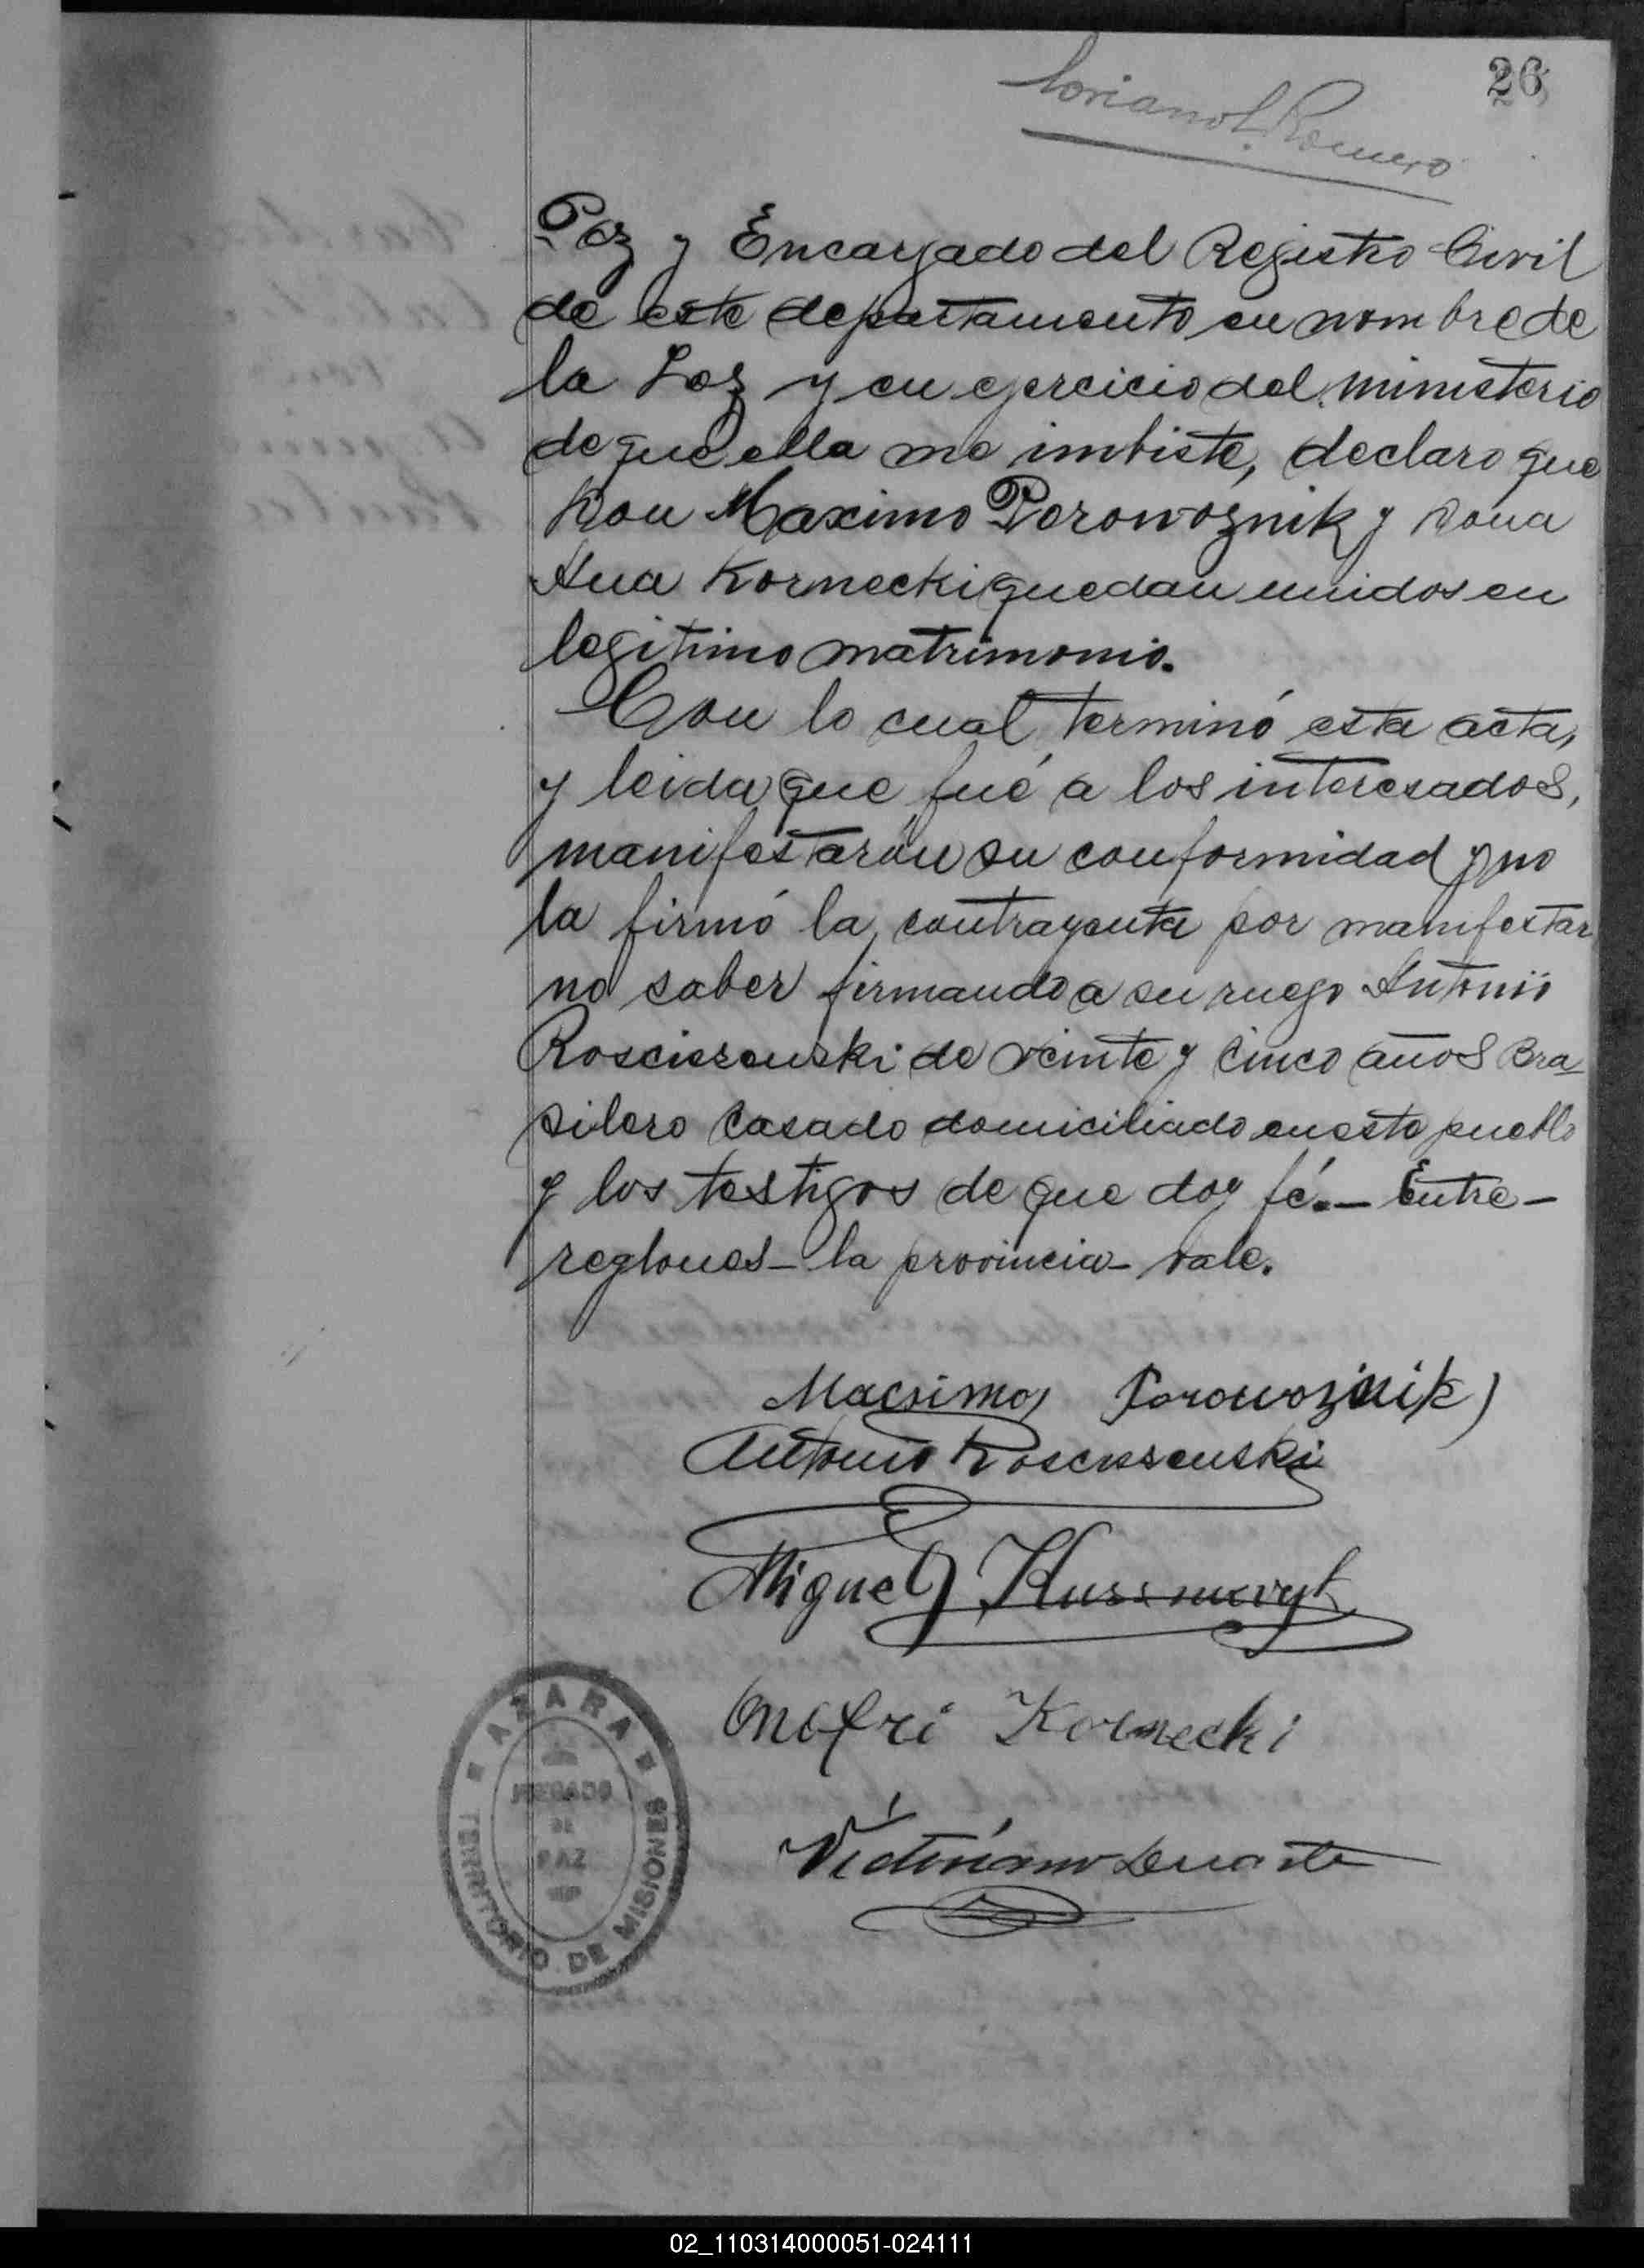 26
Soriano L. Romero
Paz y Encargado del Registro Civil
de este departamento en nombre de
la Loz y en ejercicio del ministerio
de que ella me imbiste, declaro que
Don Maximo Porowoznik y Dona
Ana Kornecki quedan unidos en
legitimo matrimonio.
Con lo cual terminó esta acta,
y leida que fué a los interesados,
manifestarón su conformidad y no
la firmó la contrayente por manifestar
no saber firmando a su ruego Antonio
Rosciszeuski de veinte y cinco años Bra-
silero Casado domiciliado en este pueblo
y los testigos de que doy fé.— Entre-
reglones— la provincia— vale.
Macsimo Porowoznik
Antonio Rosciszeuski
Miguel
Onofri Kornecki
Victoriano Duarte
AZARA
JUZGADO
DE
PAZ
TERRITORIO DE MISIONES
02_110314000051-024111